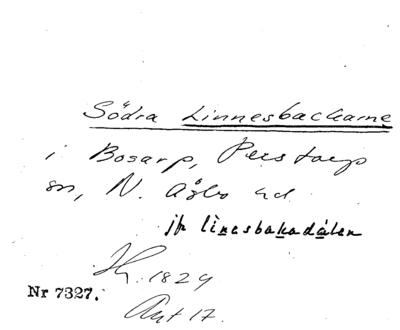 Södra Linnesbackarne
i Bosarp, Perstorps
sn, N. Åsbo hd
jfr linesbakadálen
1829
Nr 7327.
Akt 17.